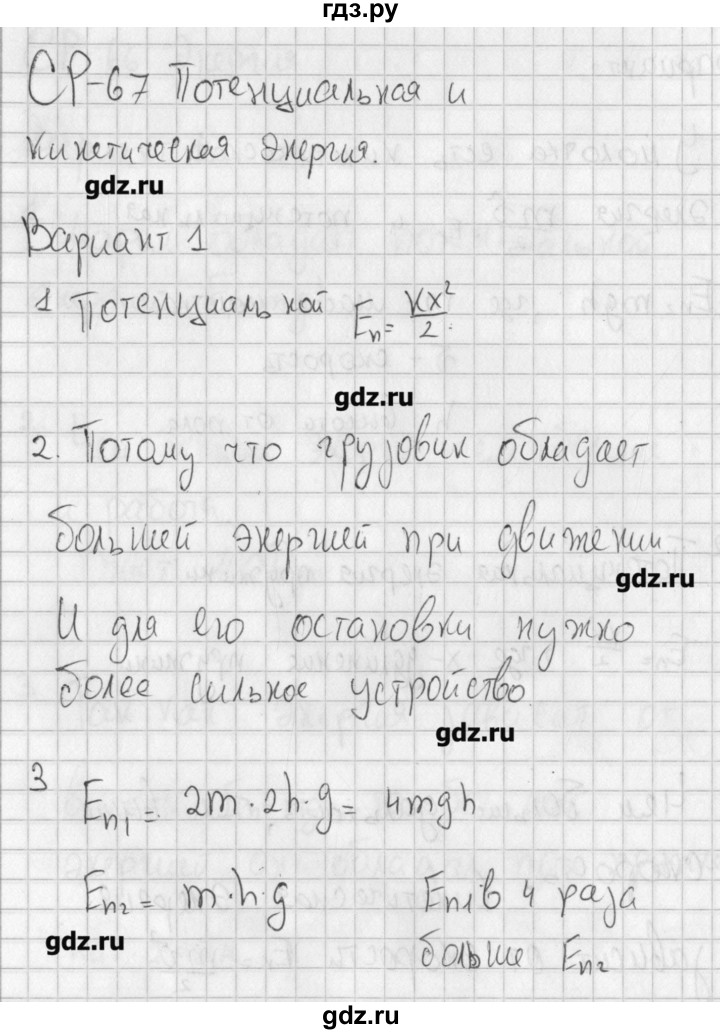 гдз.ру
СР-67 Потенциальная и
кинетическая энергия.
gdz.ru
Вариант 1
1 Потенциальной Eп = kx²/2.
gdz.ru
2. Потому что грузовик обладает
большей энергией при движении.
gdz.ru
И для его остановки нужно
более сильное устройство.
gdz.ru
3
Eп1 = 2m·2h·g = 4mgh
Eп2 = m·h·g Eп1 в 4 раза
gdz.ru
больше Eп2
gdz.ru